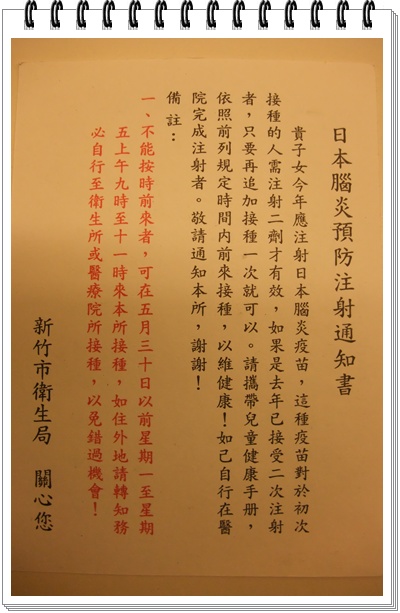 日本腦炎預防注射通知書
貴子女今年應注射日本腦炎疫苗，這種疫苗對於初次
接種的人需注射二劑才有效，如果是去年已接受二次注射
者，只要再追加接種一次就可以。請攜帶兒童健康手册，
依照前列規定時間內前來接種，以維健康！如己自行在醫
院完成注射者。敬請通知本所，謝謝！
備註：
一、不能按時前來者，可在五月三十日以前星期一至星期
五上午九時至十一時來本所接種，如住外地請轉知務
必自行至衛生所或醫療院所接種，以免錯過機會！
新竹市衛生局 關心您